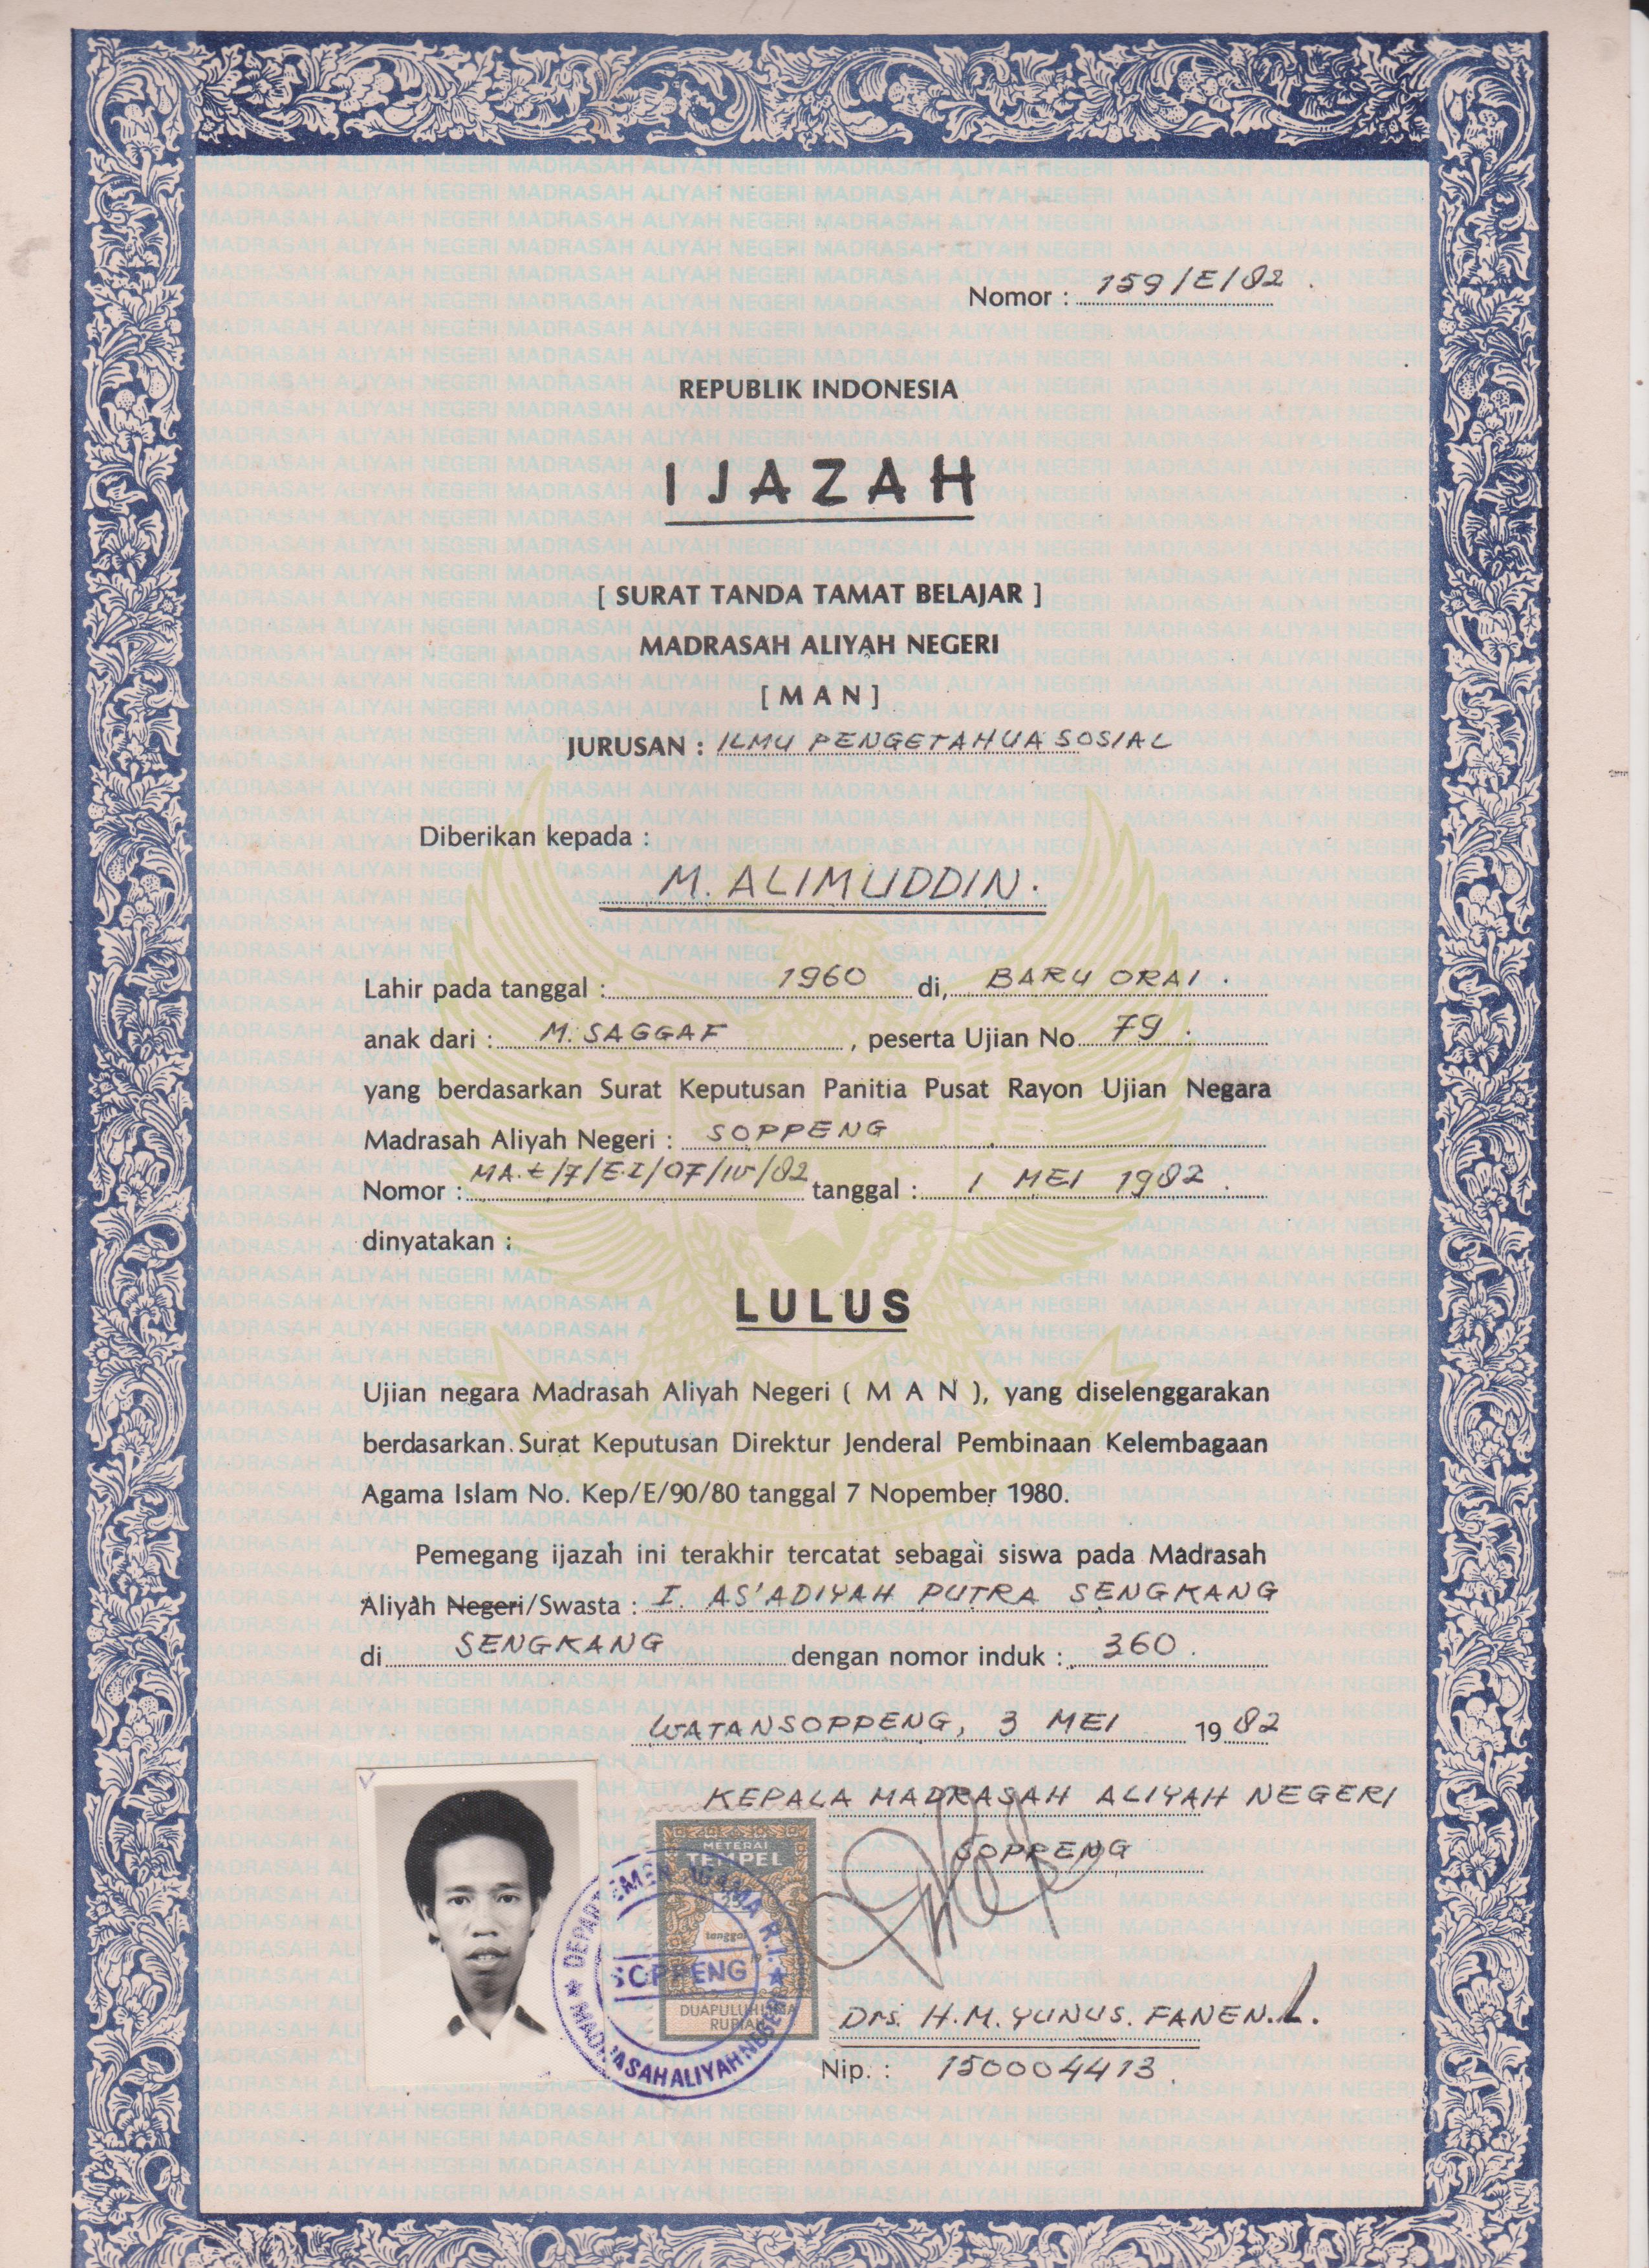 Nomor : 159/E/82
REPUBLIK INDONESIA
IJAZAH
[ SURAT TANDA TAMAT BELAJAR ]
MADRASAH ALIYAH NEGERI
[ M A N ]
JURUSAN : ILMU PENGETAHUA SOSIAL
Diberikan kepada :
M. ALIMUDDIN.
Lahir pada tanggal : 1960 di, BARU ORAI.
anak dari : M. SAGGAF, peserta Ujian No 79.
yang berdasarkan Surat Keputusan Panitia Pusat Rayon Ujian Negara
Madrasah Aliyah Negeri : SOPPENG
Nomor : tanggal : 1 MEI 1982.
dinyatakan :
LULUS
Ujian negara Madrasah Aliyah Negeri ( M A N ), yang diselenggarakan
berdasarkan Surat Keputusan Direktur Jenderal Pembinaan Kelembagaan
Agama Islam No. Kep/E/90/80 tanggal 7 Nopember 1980.
Pemegang ijazah ini terakhir tercatat sebagai siswa pada Madrasah
Aliyah Negeri/Swasta : I. AS'ADIYAH PUTRA SENGKANG
di SENGKANG dengan nomor induk : 360
WATANSOPPENG, 3 MEI 1982
KEPALA MADRASAH ALIYAH NEGERI
SOPPENG
METERAI
TEMPEL
tanggal
DUAPULUH LIMA
RUPIAH
DEPARTEMEN AGAMA R.I.
SOPPENG
MADRASAH ALIYAH NEGERI
Drs. H.M. YUNUS. FANEN.L.
Nip. : 150004413.